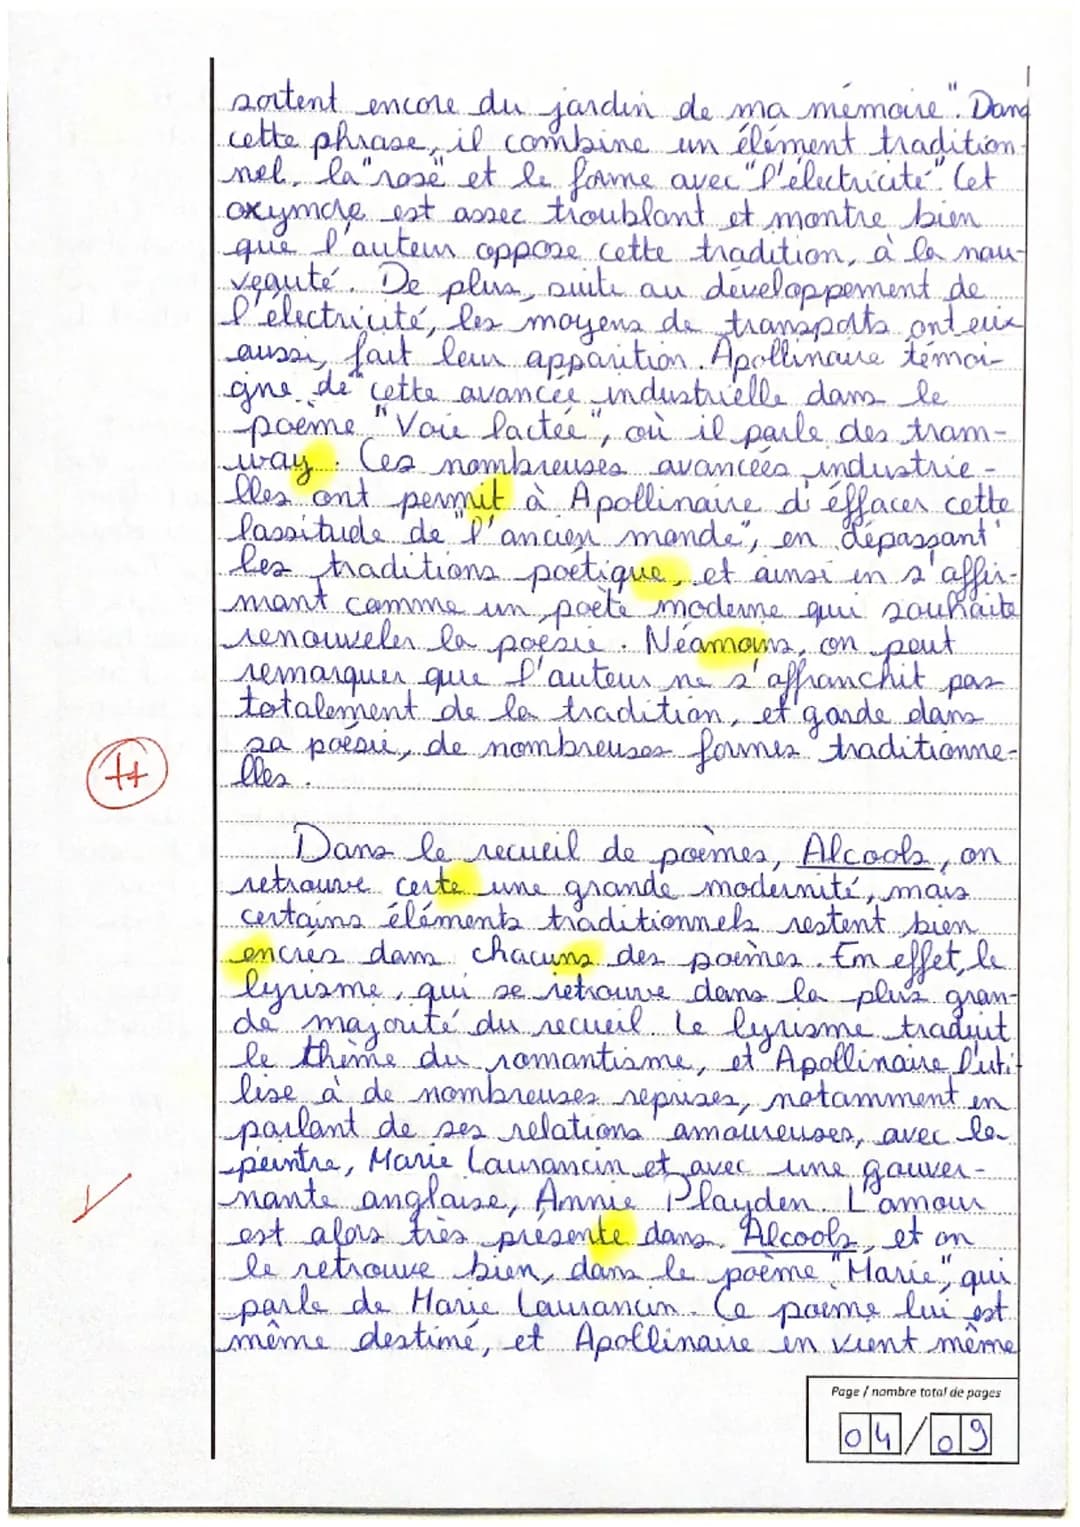 sortent encore du jardin de ma mémoire". Dans
cette phrase, il combine un élément tradition-
nel, la "rose" et le forme avec "l'électricité". Cet
oxymore est assez troublant et montre bien
que l'auteur oppose cette tradition, à la nou-
veauté. De plus, suite au développement de
l'électricité, les moyens de transports ont eux
aussi, fait leur apparition. Apollinaire témoi-
gne de cette avancée industrielle dans le
poème "Voie lactée", où il parle des tram-
way. Ces nombreuses avancées industrie-
lles ont permit à Apollinaire d'éffacer cette
lassitude de "l'ancien monde", en dépassant
les traditions poétique, et ainsi en s'affir-
mant comme un poète moderne qui souhaite
renouveler la poésie. Néamoins, on peut
remarquer que l'auteur ne s'affranchit pas
totalement de la tradition, et garde dans
sa poésie, de nombreuses formes traditionne-
lles.
++
Dans le recueil de poèmes, Alcools, on
retrouve certe une grande modernité, mais
certains éléments traditionnels restent bien
encrés dans chacuns des poèmes. En effet, le
lyrisme, qui se retrouve dans la plus gran-
de majorité du recueil. Le lyrisme traduit
le thème du romantisme, et Apollinaire l'uti-
lise à de nombreuses reprises, notamment en
parlant de ses relations amoureuses, avec la
peintre, Marie Laurancin et avec une gouver-
nante anglaise, Annie Playden. L'amour
est alors très présente dans Alcools, et on
le retrouve bien, dans le poème "Marie", qui
parle de Marie Laurancin. Ce poème lui est
même destiné, et Apollinaire en vient même
Page / nombre total de pages
04/09